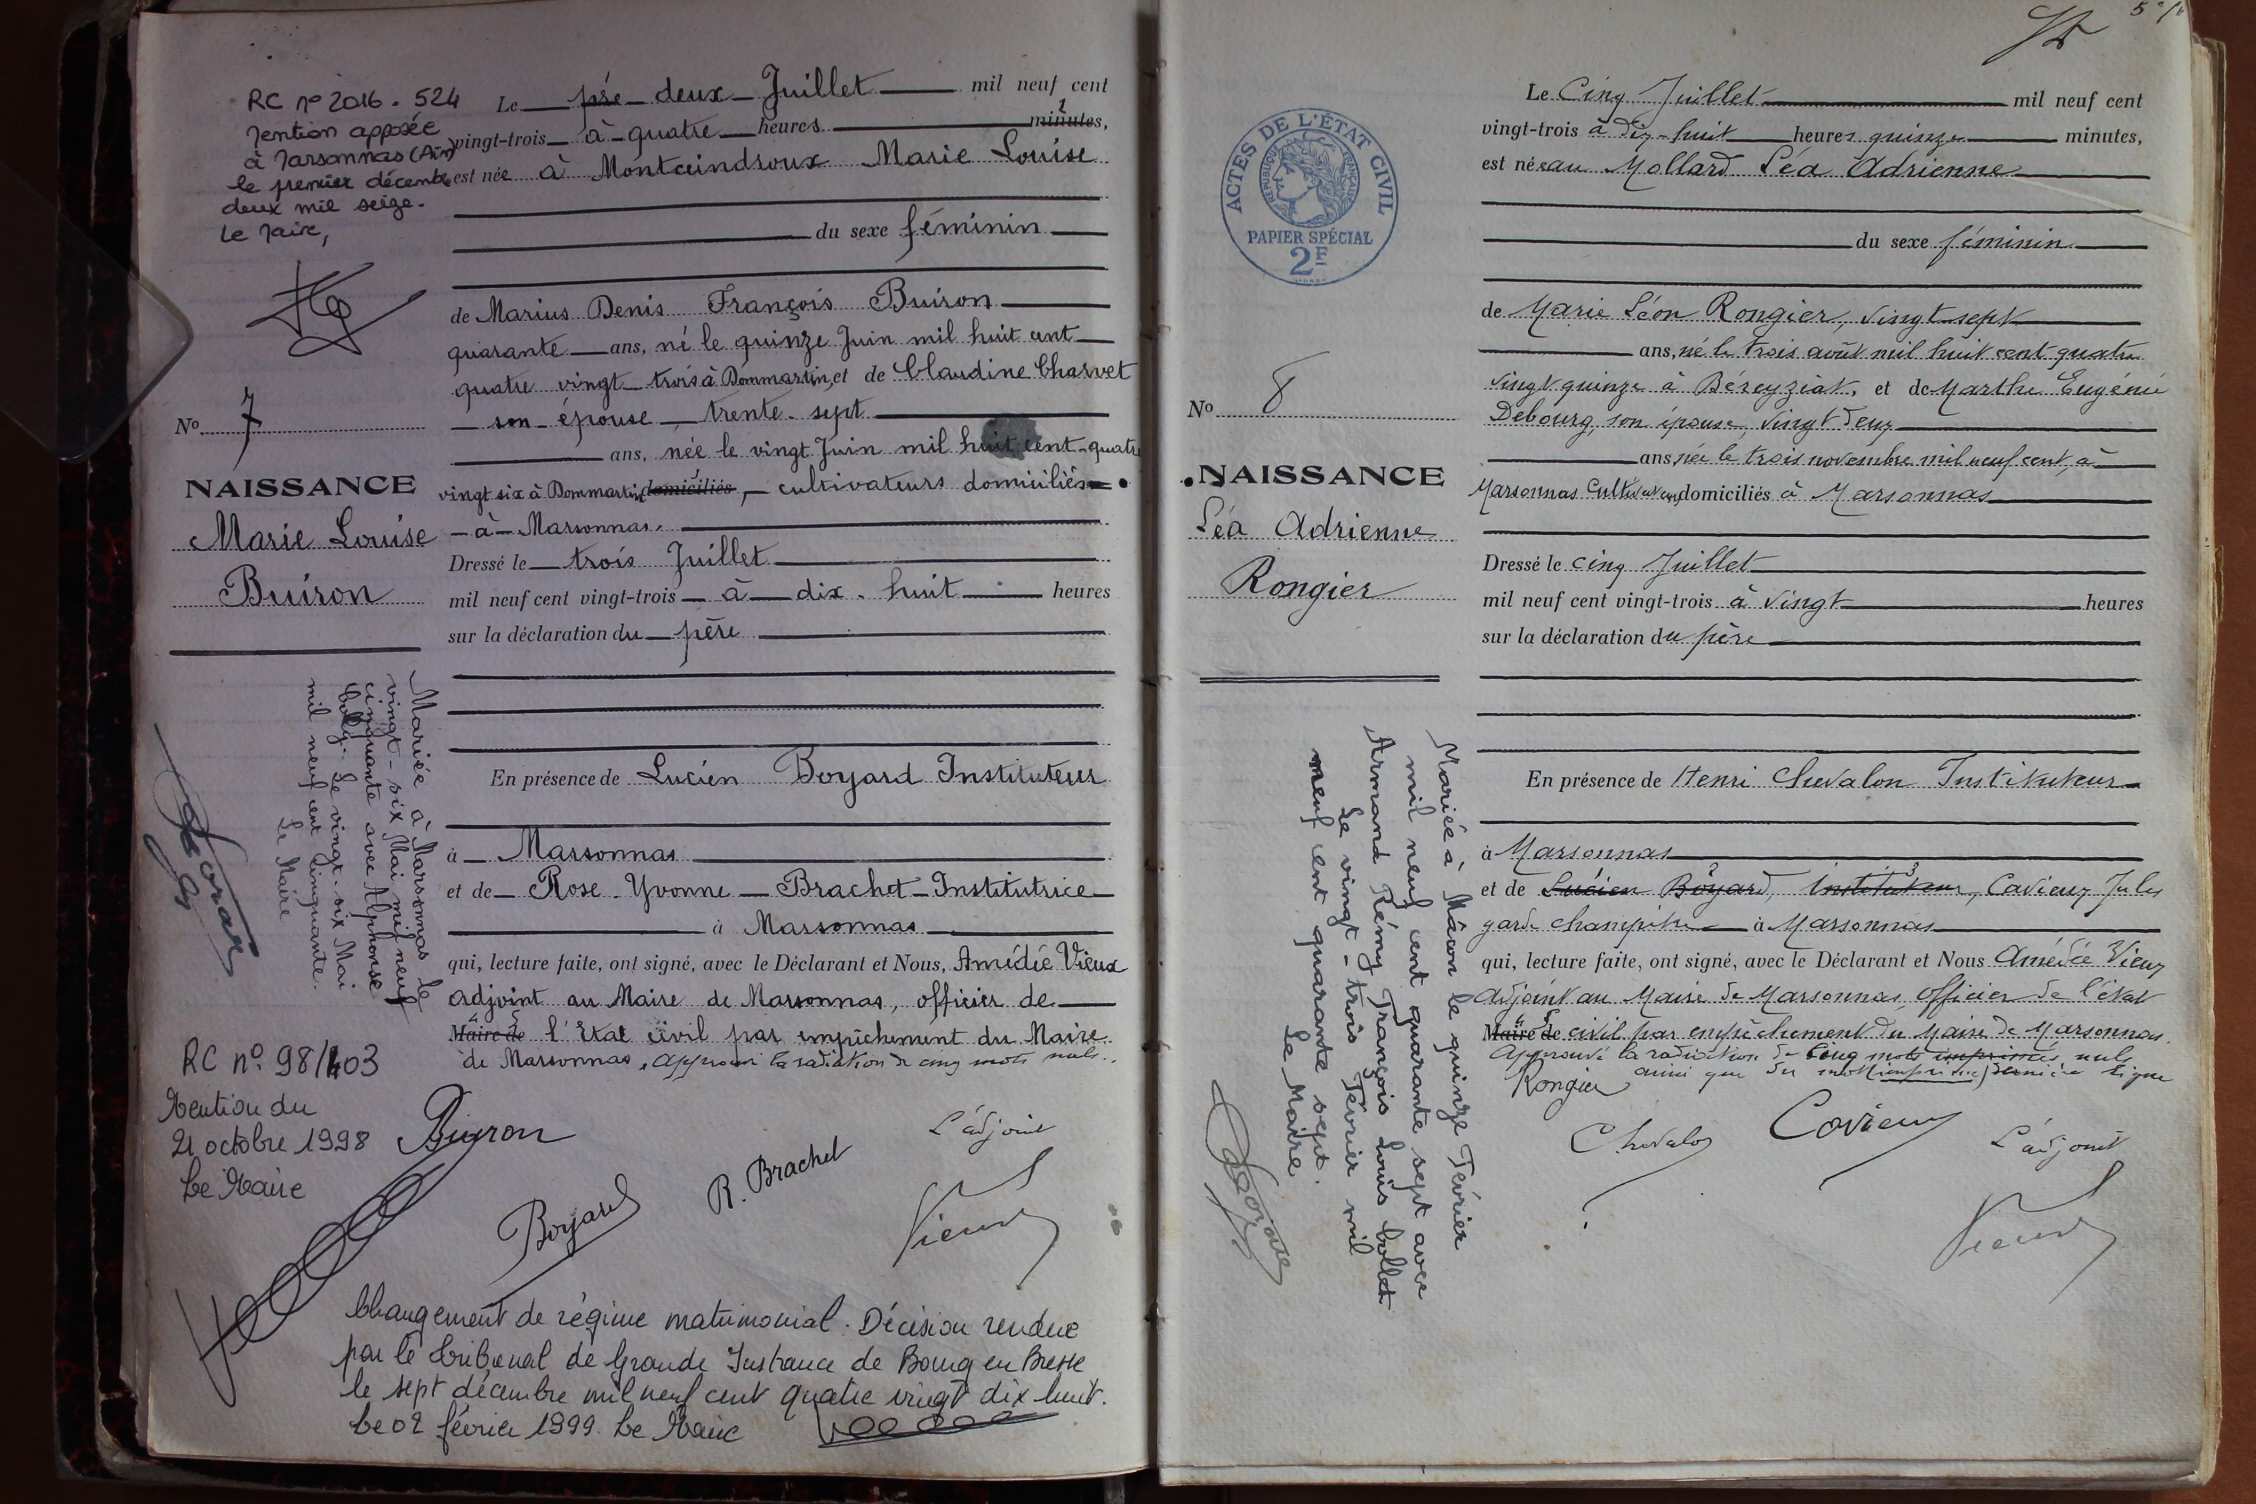 RC n° 2016 - 524
mention apposée
à Marsonnas (Ain)
le premier décembre
deux mil seize.
Le Maire,
N° 7
NAISSANCE
Marie Louise
Buiron
Mariée à Marsonnas le
vingt-six Mai mil neuf
cinquante avec Alphonse
Le vingt-six Mai
mil neuf cent cinquante.
Le Maire
RC n° 98/403
Mention du
21 octobre 1998
Le Maire
Le deux Juillet mil neuf cent
vingt-trois à quatre heures minutes,
est née à Montcindroux Marie Louise
du sexe féminin
de Marius Denis François Buiron
quarante ans, né le quinze Juin mil huit cent
quatre vingt trois à Dommartin, et de Claudine Charvet
son épouse, trente-sept
ans, née le vingt Juin mil huit cent-quatre
vingt six à Dommartin, domiciliés, cultivateurs domiciliés
à Marsonnas.
Dressé le trois Juillet
mil neuf cent vingt-trois à dix-huit heures
sur la déclaration du père
En présence de Lucien Boyard Instituteur
à Marsonnas
et de Rose Yvonne Brachet Institutrice
à Marsonnas
qui, lecture faite, ont signé, avec le Déclarant et Nous, Amédée Vieux
adjoint au Maire de Marsonnas, officier de
Maire de l'Etat civil par empêchement du Maire
de Marsonnas. Approuvé la radiation de cinq mots nuls.
Buiron
L'adjoint
Boyard
R. Brachet
Vieux
Changement de régime matrimonial. Décision rendue
par le tribunal de Grande Instance de Bourg en Bresse
le sept décembre mil neuf cent quatre vingt dix huit.
Le 02 février 1999 Le Maire
ACTES DE L'ÉTAT CIVIL
RÉPUBLIQUE FRANÇAISE
PAPIER SPÉCIAL
2F
N° 8
NAISSANCE
Léa Adrienne
Rongier
Mariée à Mâcon le quinze Février
mil neuf cent quarante sept avec
Armand Rémy François Louis Collet
Le vingt-trois Février mil
neuf cent quarante sept.
Le Maire
Le Cinq Juillet mil neuf cent
vingt-trois à dix-huit heures quinze minutes,
est née au Mollard Léa Adrienne
du sexe féminin
de Marie Léon Rongier, vingt sept
ans, né le trois août mil huit cent quatre
vingt quinze à Béreyziat, et de Marthe Eugénie
Debourg, son épouse, vingt deux
ans, née le trois novembre mil neuf cent, à
Marsonnas Cultivateurs, domiciliés à Marsonnas
Dressé le cinq Juillet
mil neuf cent vingt-trois à vingt heures
sur la déclaration du père
En présence de Henri Chevalon Instituteur
à Marsonnas
et de Lucien Boyard, Instituteur, Cavieux Jules
garde champêtre à Marsonnas
qui, lecture faite, ont signé, avec le Déclarant et Nous Amédée Vieux
adjoint au Maire de Marsonnas officier de l'état
Maire de civil par empêchement du Maire de Marsonnas.
Approuvé la radiation de cinq mots imprimés nuls
ainsi que du mot (imprimés) dernière ligne
Rongier
Chevalon
Cavieux
L'adjoint
Vieux